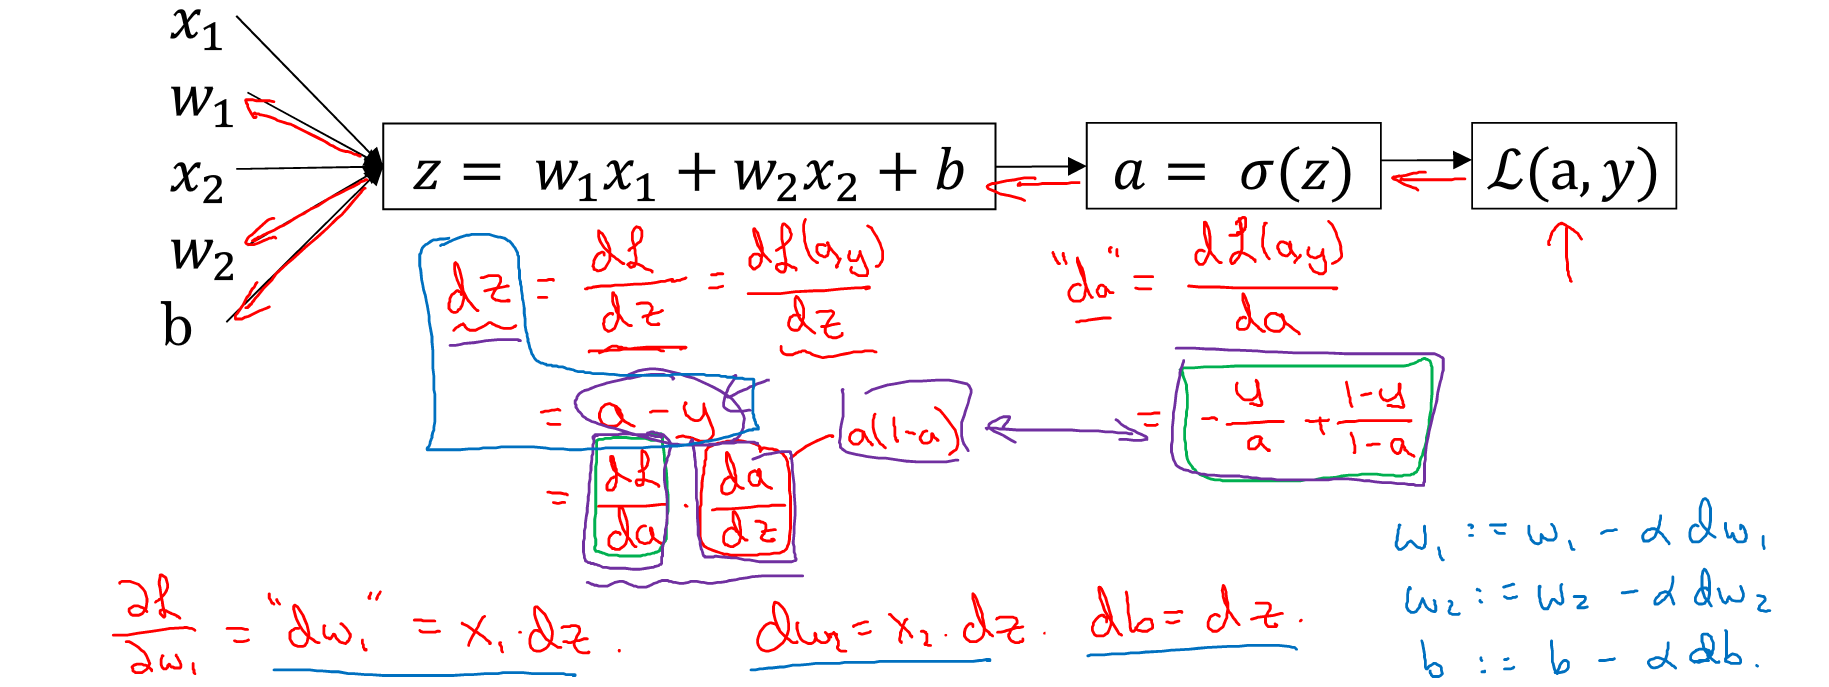 x₁
w₁
x₂
w₂
b
z = w₁x₁ + w₂x₂ + b
a = σ(z)
ℒ(a, y)
dz = dℒ/dz = dℒ(a,y)/dz
"da" = dℒ(a,y)/da
= a - y
a(1-a)
= -y/a + (1-y)/(1-a)
= dℒ/da · da/dz
∂ℒ/∂w₁ = "dw₁" = x₁·dz.
dw₂ = x₂·dz.
db = dz.
w₁ := w₁ - α dw₁
w₂ := w₂ - α dw₂
b := b - α db.